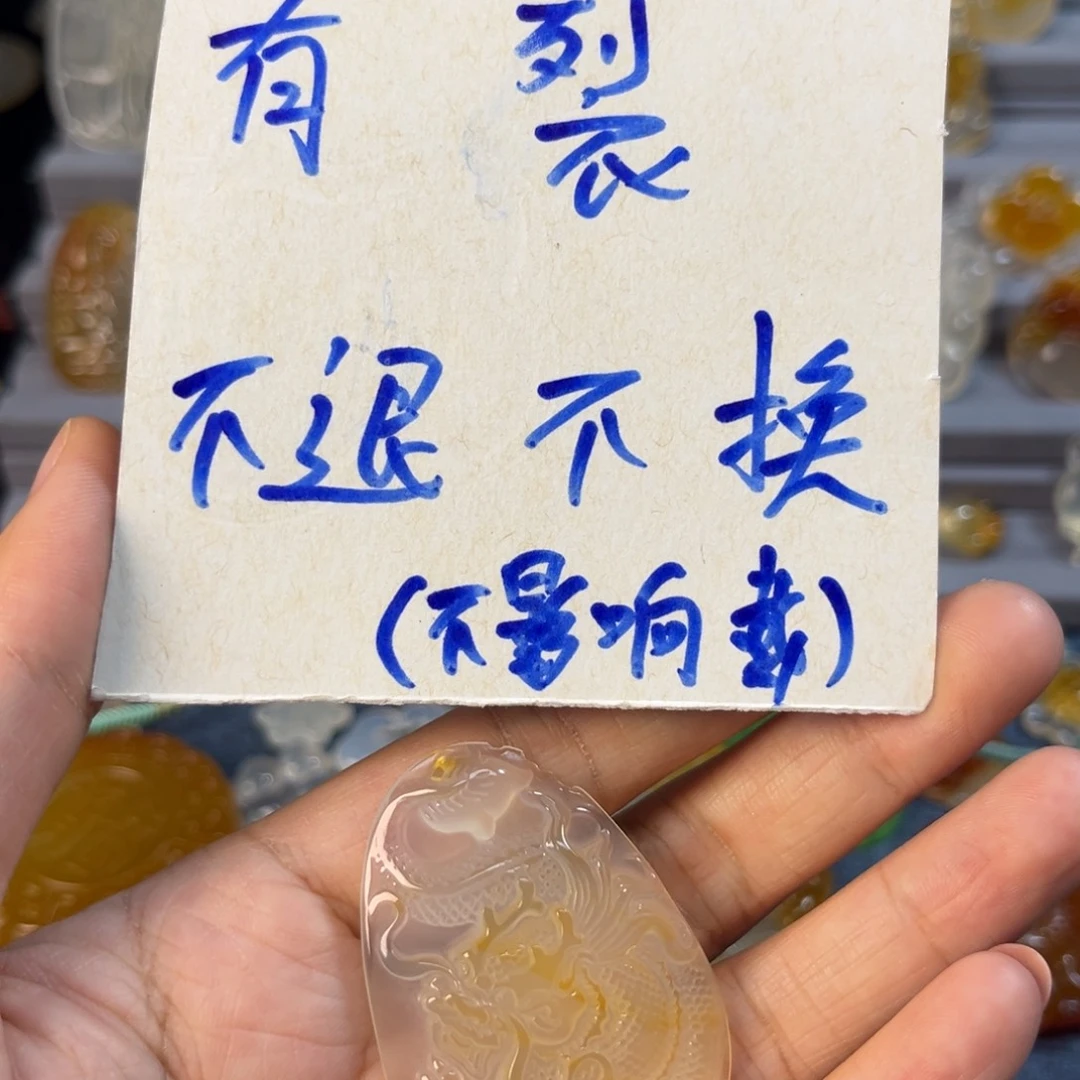 有 裂
不退 不 换
(不影响戴)